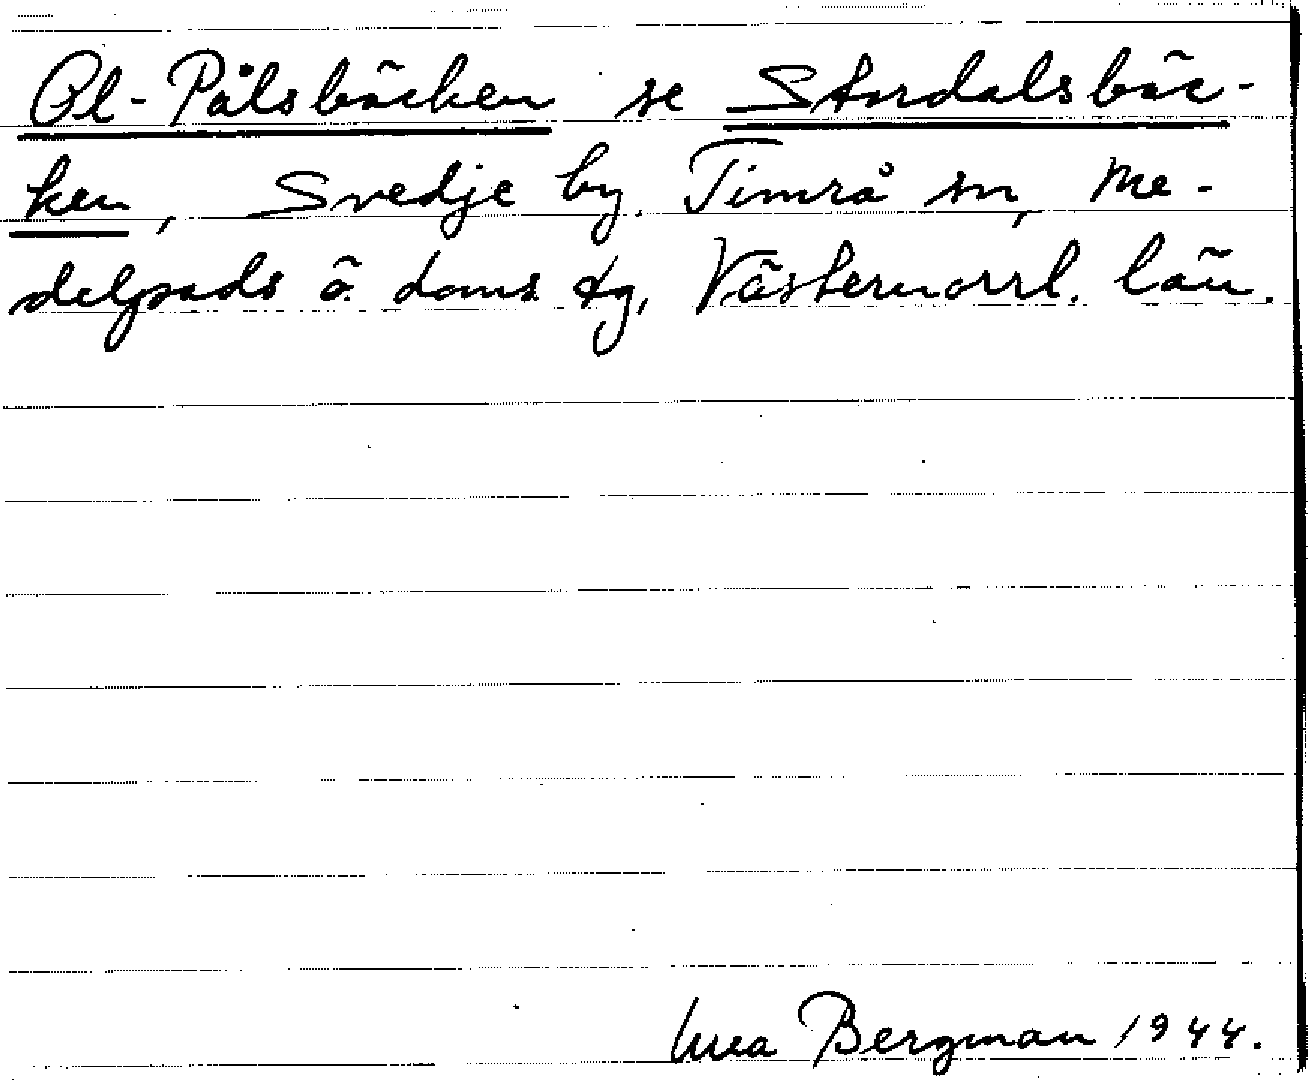 Ol-Pålsbäcken se Stordalsbäc-
ken, Svedje by. Timrå sn, Me-
delpads ö. doms. tg, Västernorrl. län.
Bergman 1944.